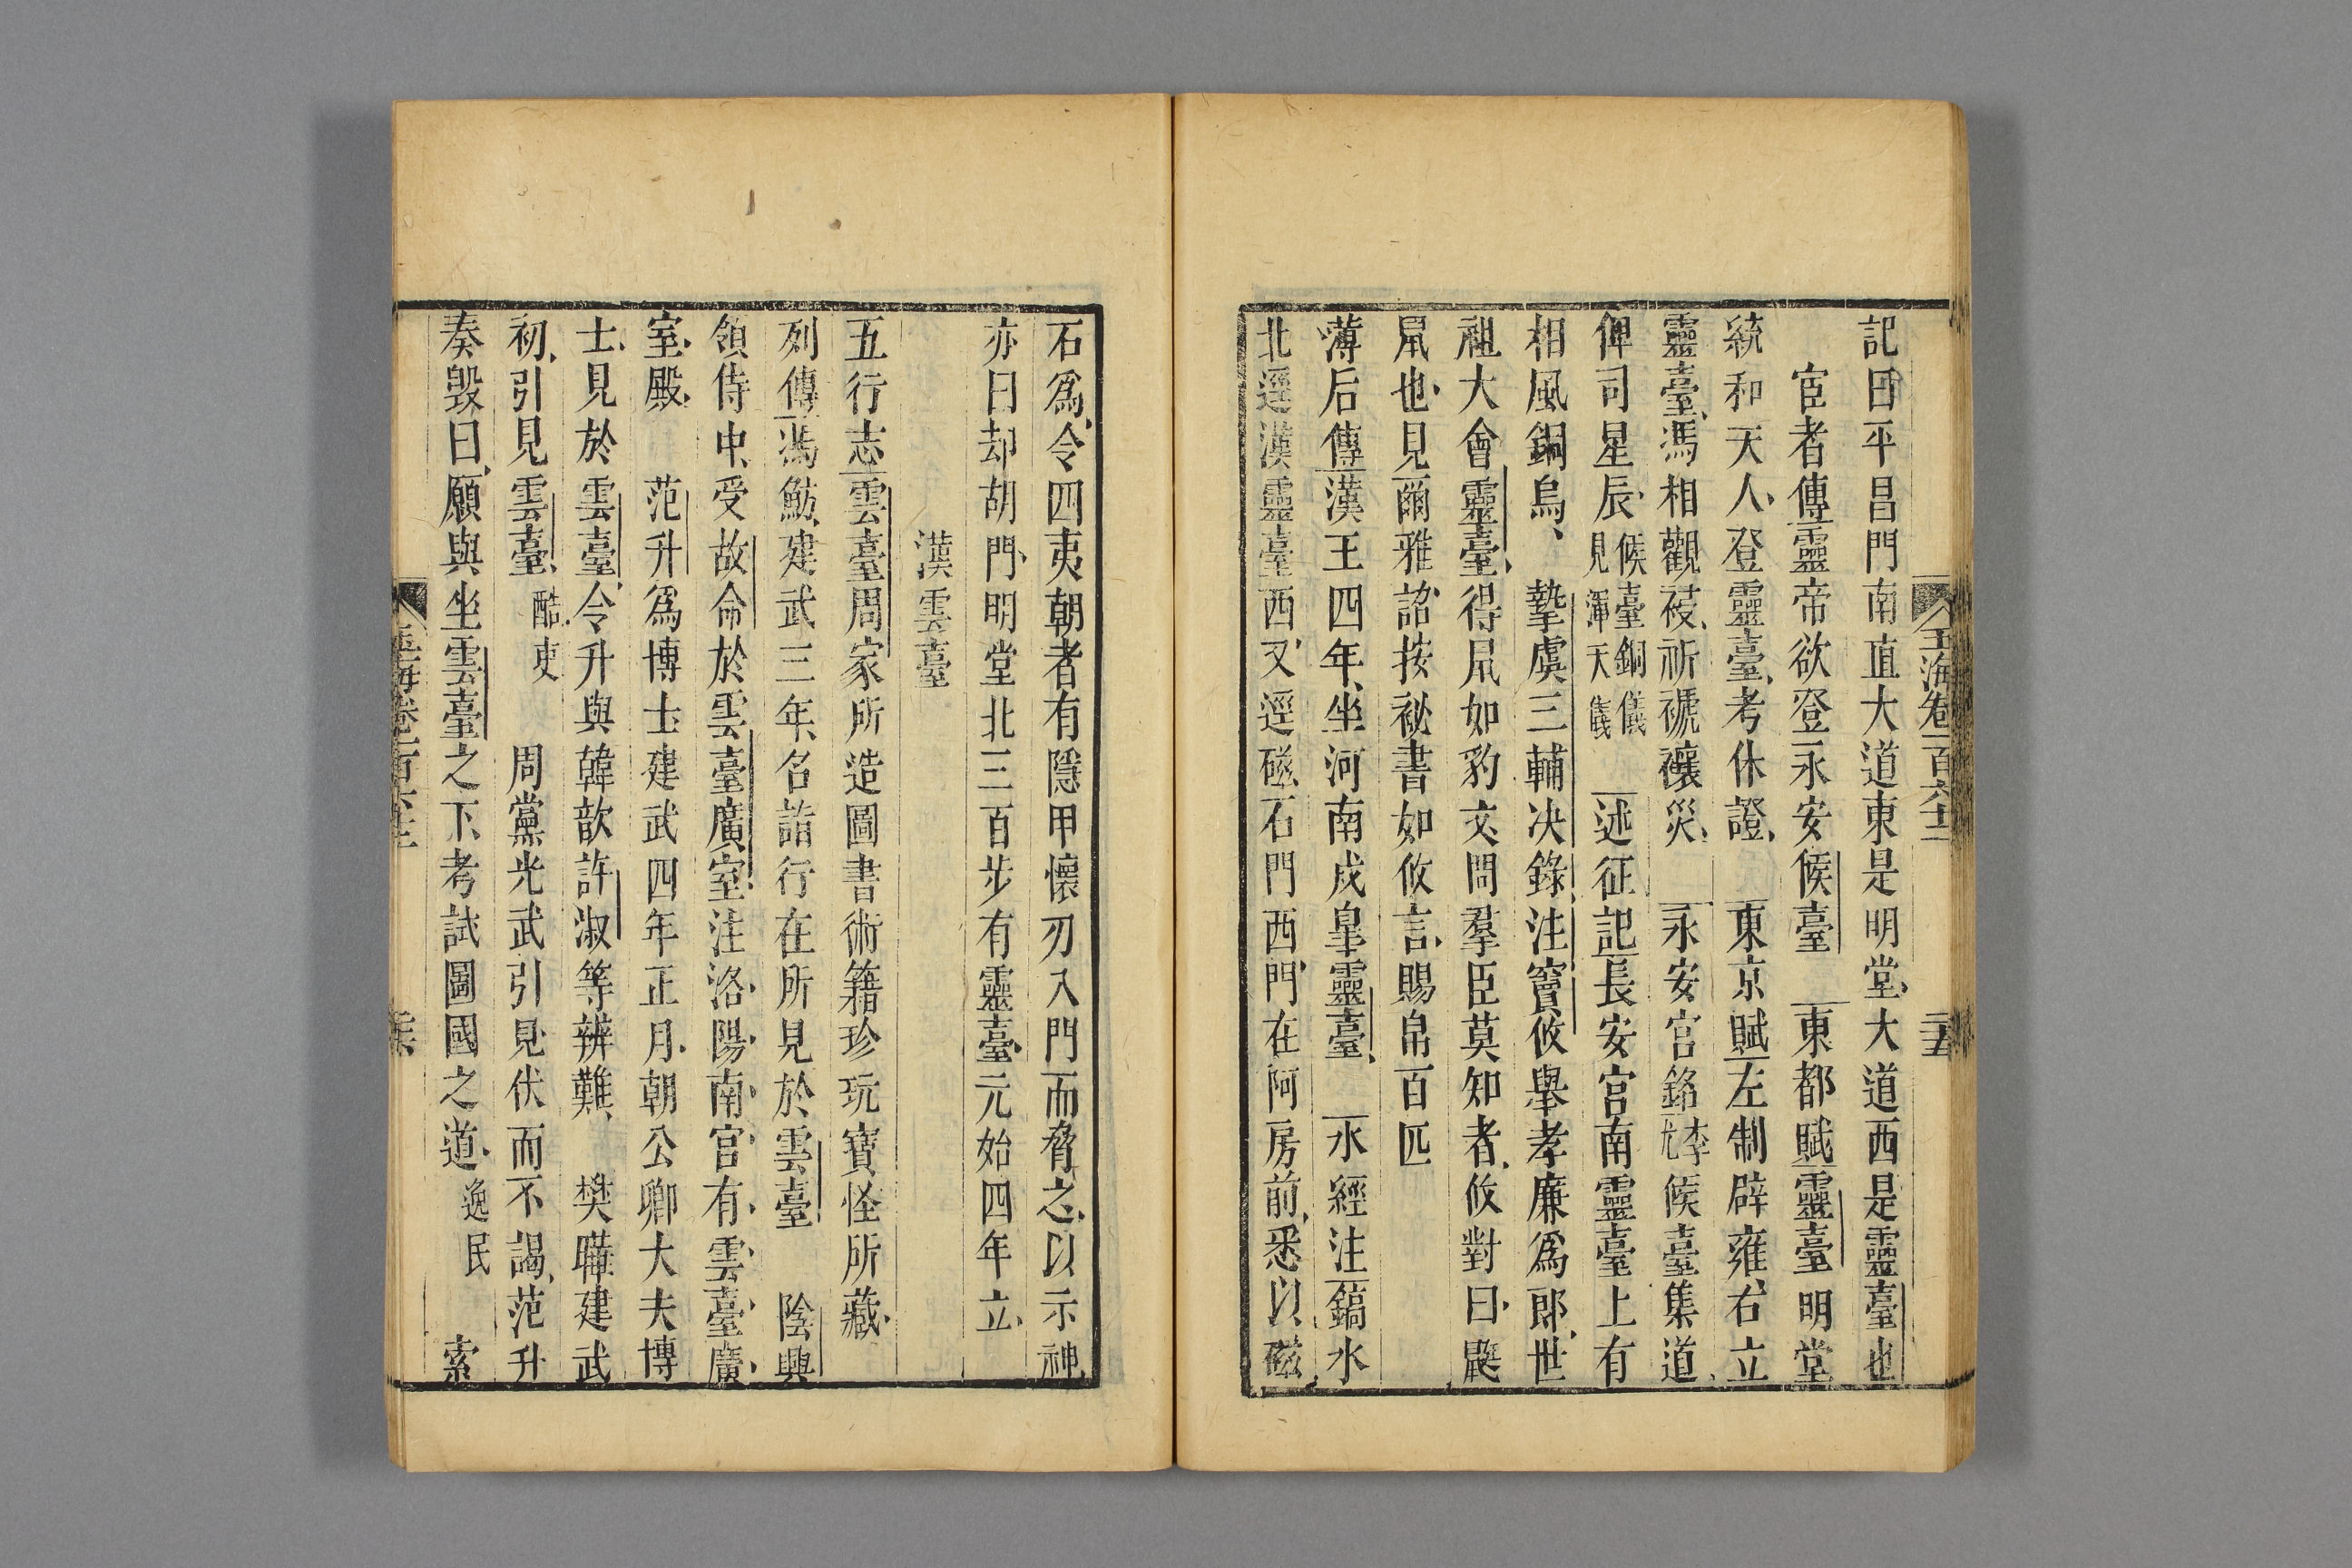 玉海卷一百六十二
二十五
記曰平昌門南直大道東是明堂大道西是靈臺也
宦者傳靈帝欲登永安候臺　東都賦靈臺明堂
統和天人登靈臺考休證　東京賦左制辟雍右立
靈臺馮相觀祲祈禠禳災　永安宮銘李尤候臺集道
俾司星辰候臺銅儀見渾天儀　述征記長安宮南靈臺上有
相風銅烏　摯虞三輔決錄注竇攸舉孝廉爲郎世
祖大會靈臺得鼠如豹文問羣臣莫知者攸對曰鼮
鼠也見爾雅詔按祕書如攸言賜帛百匹
薄后傳漢王四年坐河南成皐靈臺　水經注鎬水
北逕漢靈臺西又逕磁石門西門在阿房前悉以磁
石爲令四夷朝者有隱甲懷刃入門而脅之以示神
亦曰却胡門明堂北三百步有靈臺元始四年立
漢雲臺
五行志雲臺周家所造圖書術籍珍玩寶怪所藏
列傳馮魴建武三年名詣行在所見於雲臺　陰興
領侍中受故命於雲臺廣室注洛陽南宮有雲臺廣
室殿　范升爲博士建武四年正月朝公卿大夫博
士見於雲臺令升與韓歆許淑等辨難　樊曄建武
初引見雲臺酷吏　周黨光武引見伏而不謁范升
奏毀曰願與坐雲臺之下考試圖國之道逸民　索